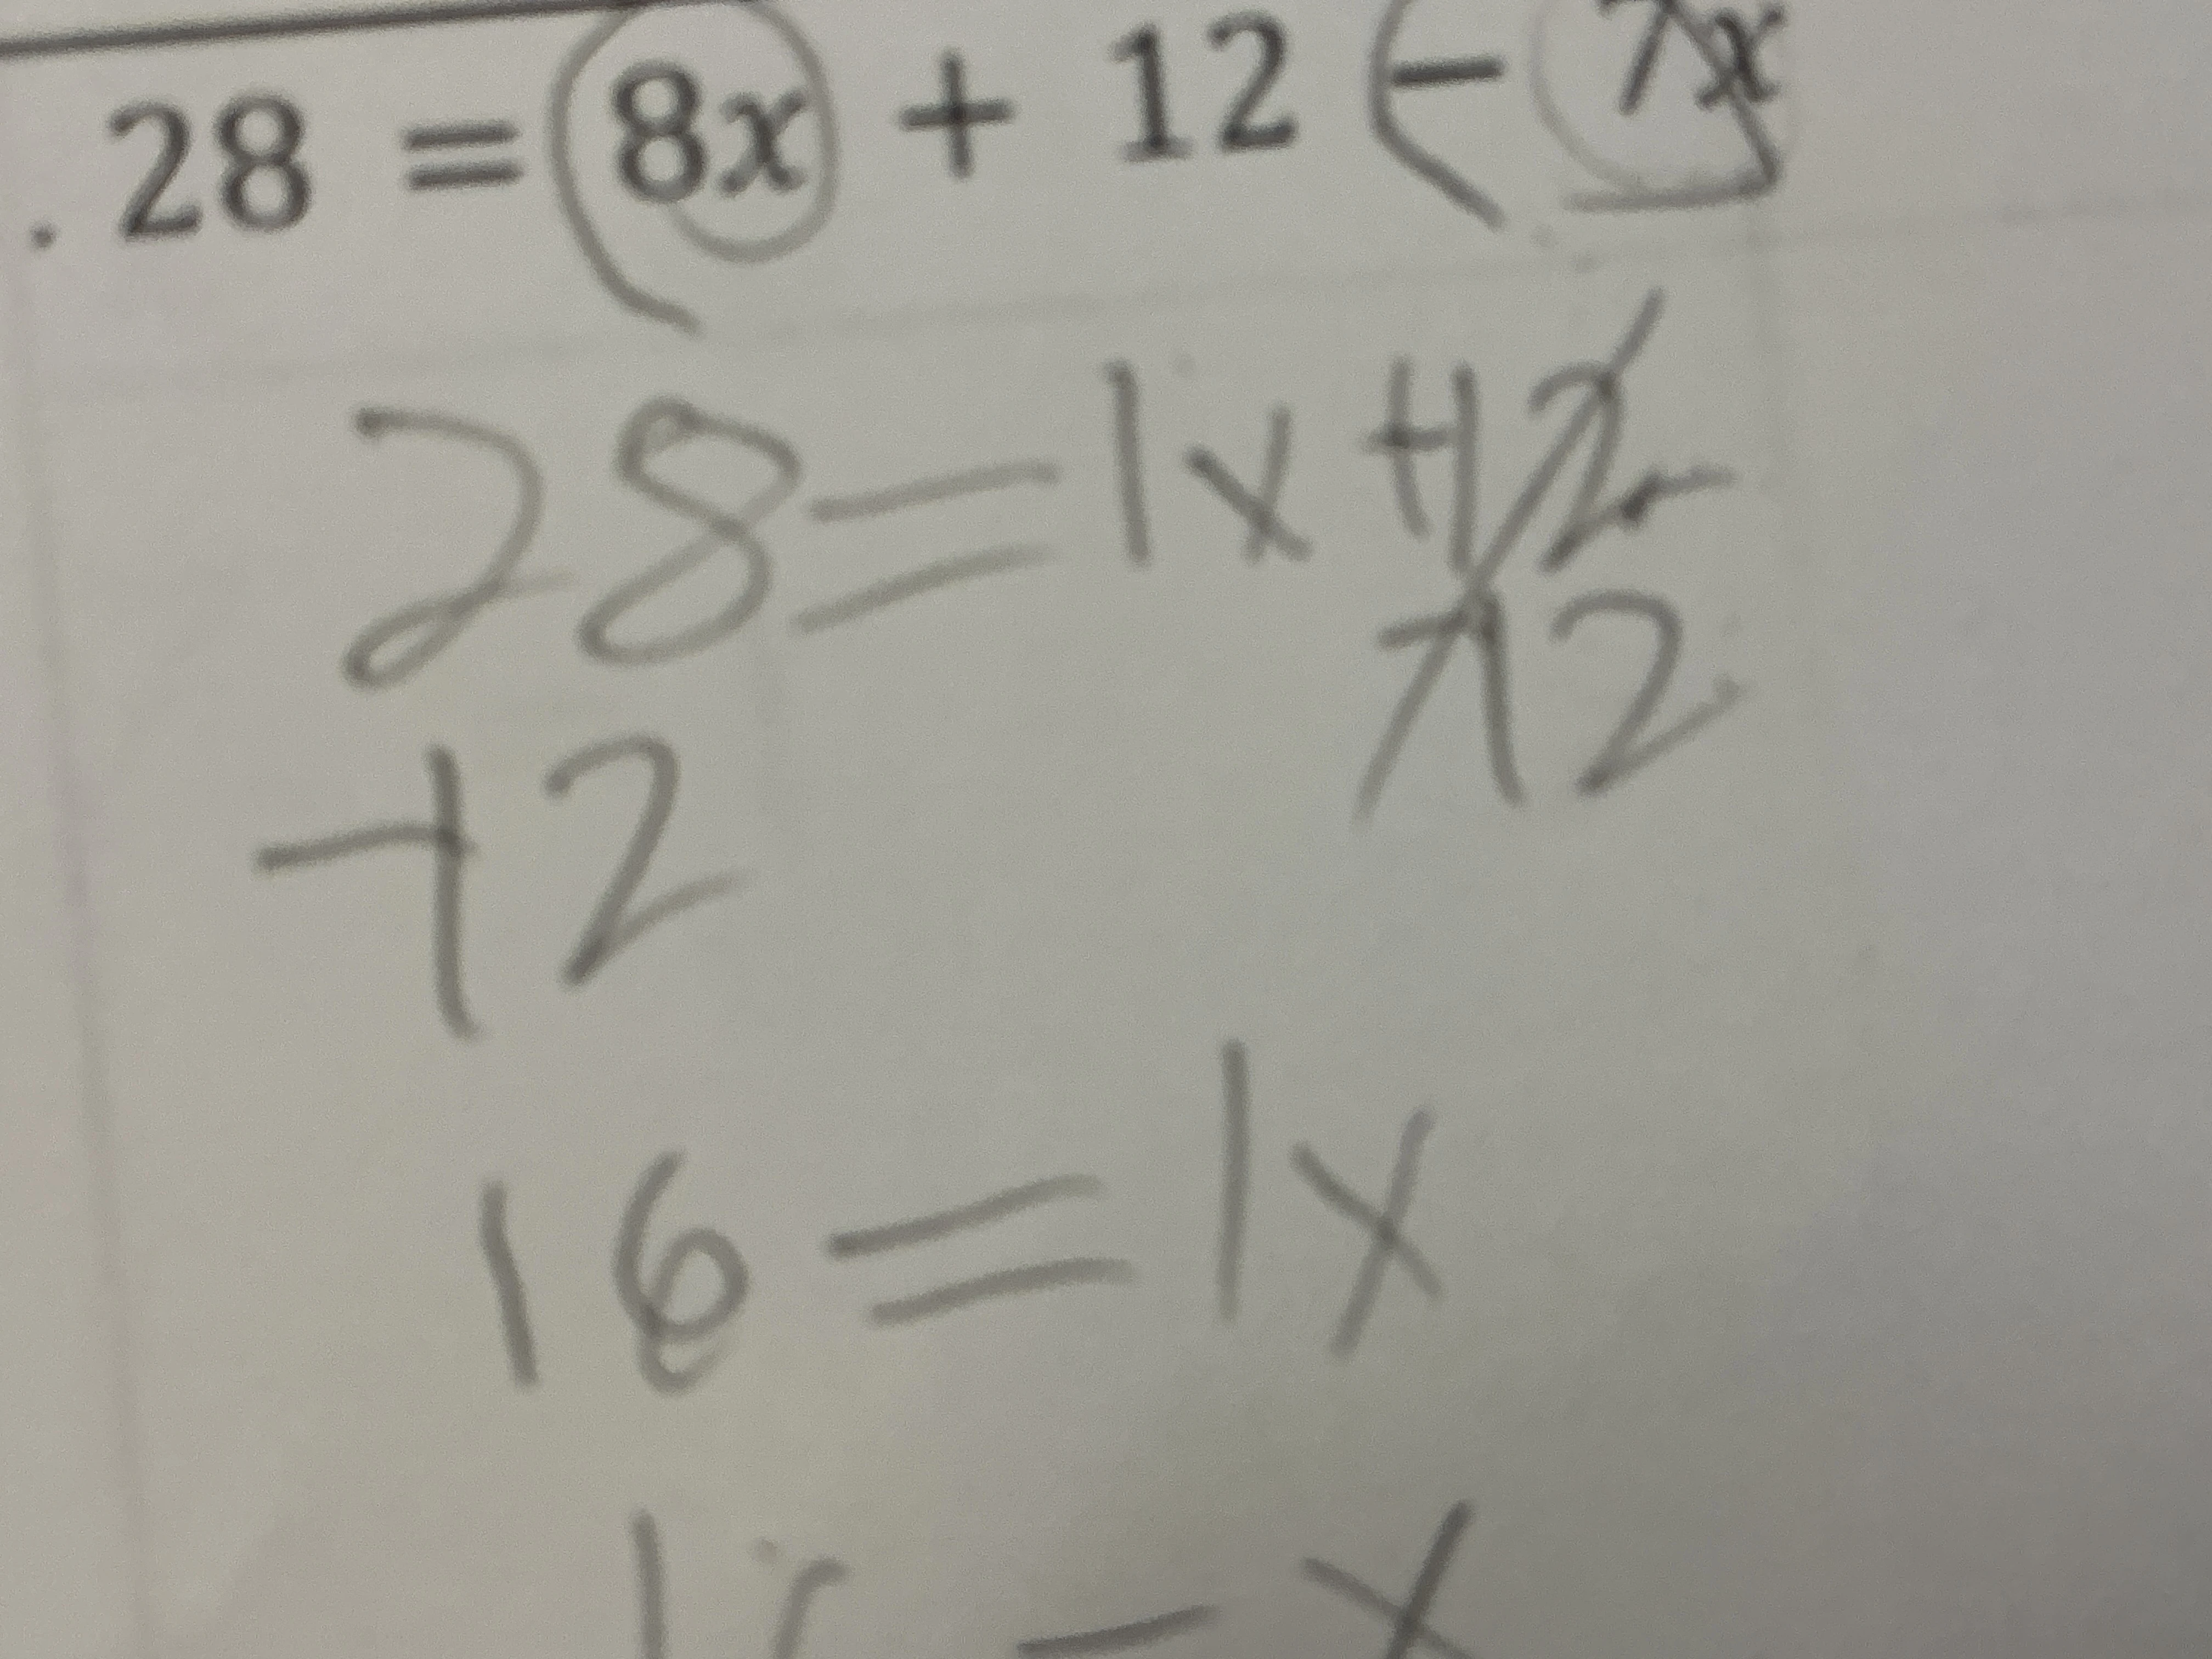 . 28 = 8x + 12 - 7x
28 = 1x + 12
-12
-12
16 = 1x